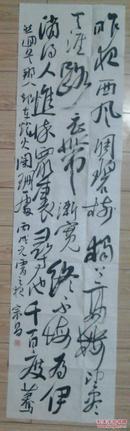 昨夜西风凋碧树独上高楼望尽
天涯路衣带渐宽终不悔为伊
消得人憔悴众里寻他千百度蓦
然回首那人却在灯火阑珊处 丙戌元宵 宗昌